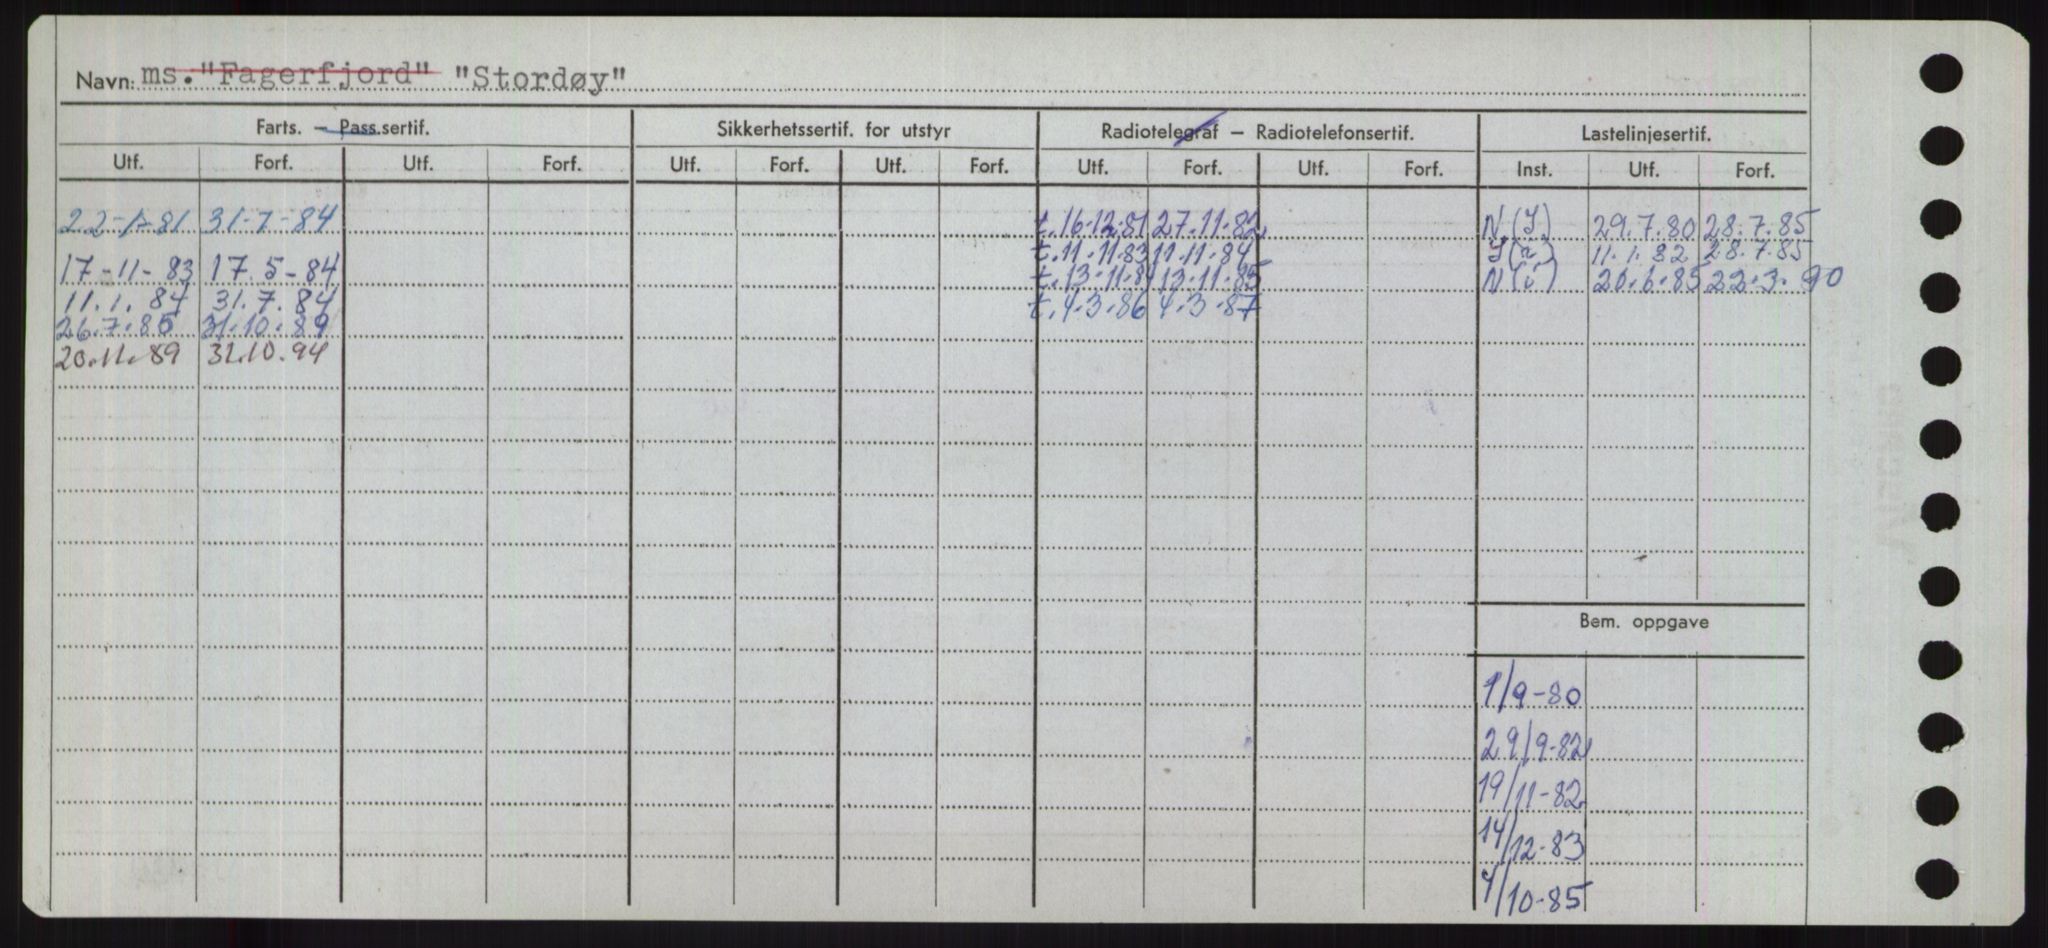 Navn: ms. "Fagerfjord" "Stordøy"
Farts. – Pass.sertif. Sikkerhetssertif. for utstyr Radiotelegraf – Radiotelefonsertif. Lastelinjesertif.
Utf. Forf. Utf. Forf. Utf. Forf. Utf. Forf. Utf. Forf. Utf. Forf. Inst. Utf. Forf.
22-1-81 31-7-84 t. 16.12.81 27.11.82 N(Y) 29.7.80 28.7.85
t. 11.11.83 11.11.84 11.1.82 28.7.85
17-11-83 17.5-84 t. 13.11.84 13.11.85 20.6.85 22.3.90
11.1.84 31.7.84 t. 4.3.86 4.3.87
26.7.85 31.10.89
20.11.89 31.10.94
Bem. oppgave
1/9-80
29/9-82
19/11-82
14/12-83
4/10-85